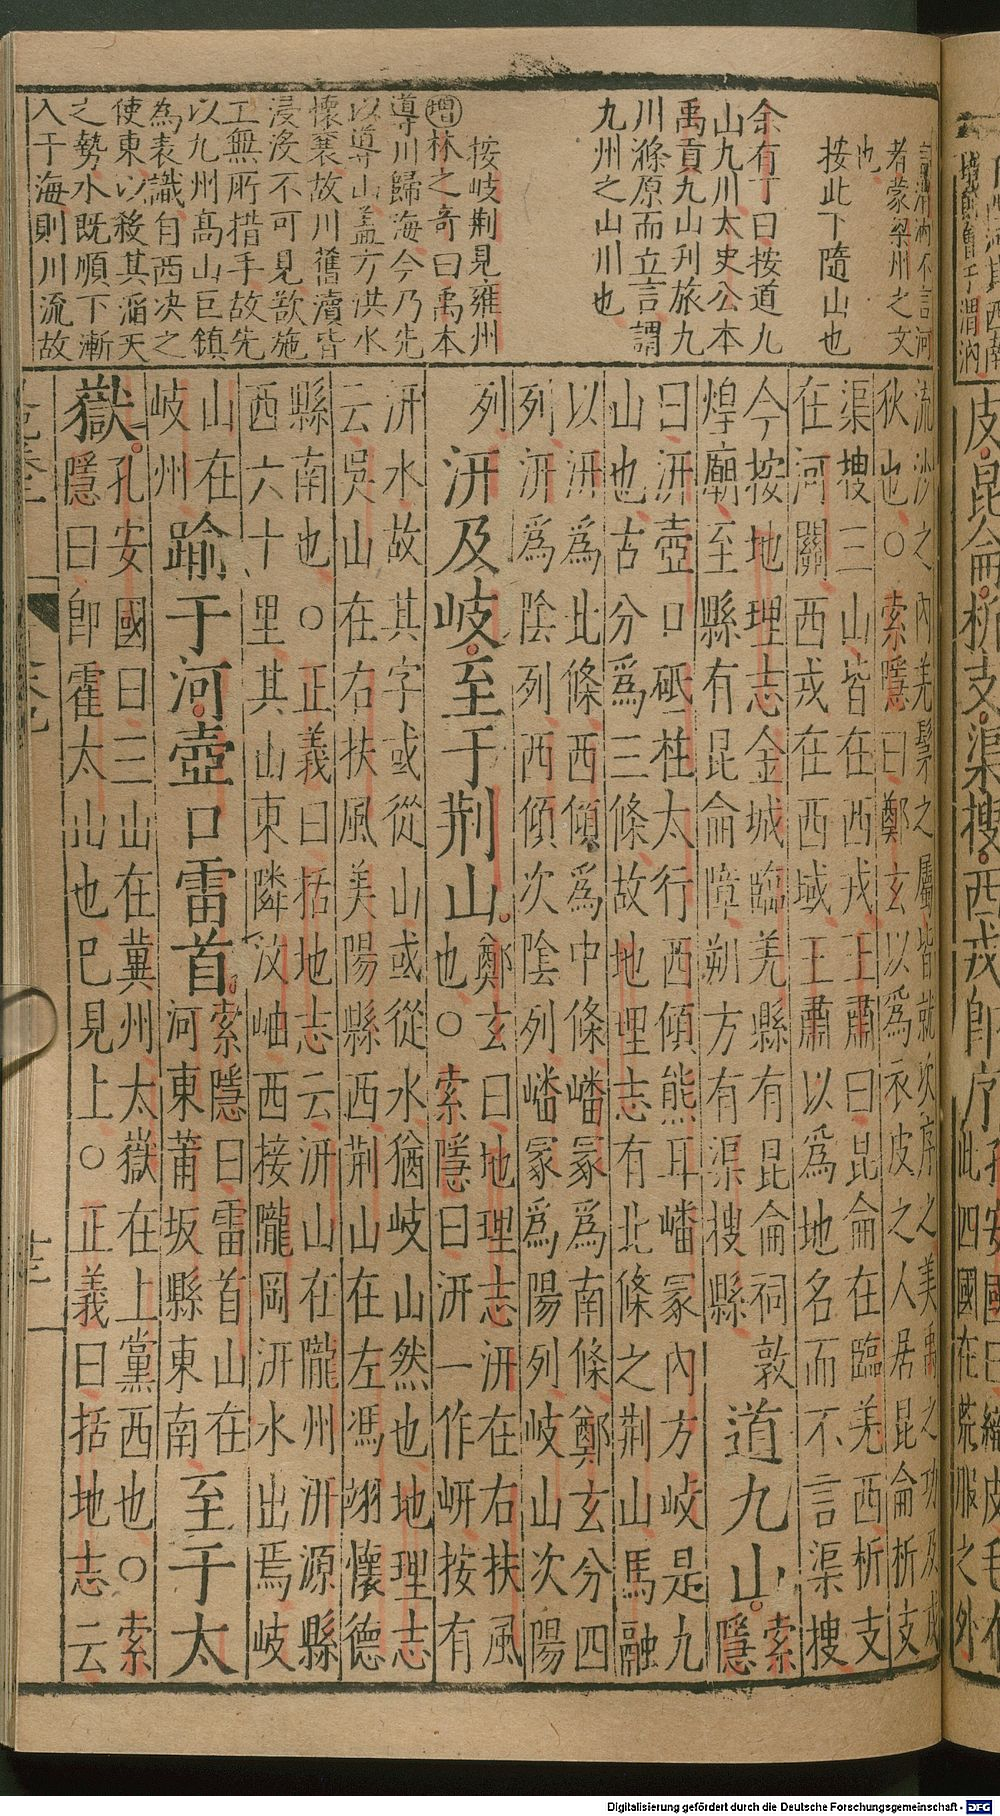 皮昆侖析支渠搜西戎卽序孔安國曰織皮毛
此四國在荒服之外
言渭汭不言河
者蒙梁州之文
也
按此下隨山也
余有丁曰按道九
山九川太史公本
禹貢九山刋旅九
川滌原而立言謂
九州之山川也
按岐荆見雍州
增林之竒曰禹本
導川歸海今乃先
以導山盖方洪水
懷襄故川舊瀆皆
浸没不可見欲施
工無所措手故先
以九州髙山巨鎮
為表識自西决之
使東以殺其滔天
之勢水既順下漸
入于海則川流故
流沙之內羌髳之屬皆就次序之美禹之功及戎
秋也○索隱曰鄭玄以爲衣皮之人居昆侖析支
渠搜三山皆在西戎王肅曰昆侖在臨羌西析支
在河關西戎在西域王肅以爲地名而不言渠搜
今按地理志金城臨羌縣有昆侖祠敦
煌廟至縣有昆侖障朔方有渠搜縣
道九山索
隱
曰汧壺口砥柱太行西傾熊耳嶓冢內方岐是九
山也古分爲三條故地理志有北條之荆山馬融
以汧爲北條西傾爲中條嶓冢爲南條鄭玄分四
列汧爲陰列西傾次陰列嶓冢爲陽列岐山次陽
列
汧及岐至于荆山
鄭玄曰地理志汧在右扶風
也○索隱曰汧一作岍按有
汧水故其字或從山或從水猶岐山然也地理志
云吳山在右扶風美陽縣西荆山在左馮翊懷德
縣南也○正義曰括地志云汧山在隴州汧源縣
西六十里其山東隣汶岫西接隴岡汧水出焉岐
山在
岐州
踰于河壺口雷首
索隱曰雷首山在
河東莆坂縣東南
至于太
嶽
孔安國曰三山在冀州太嶽在上黨西也○索
隱曰卽霍太山也巳見上○正義曰括地志云
Digitalisierung gefördert durch die Deutsche Forschungsgemeinschaft - DFG